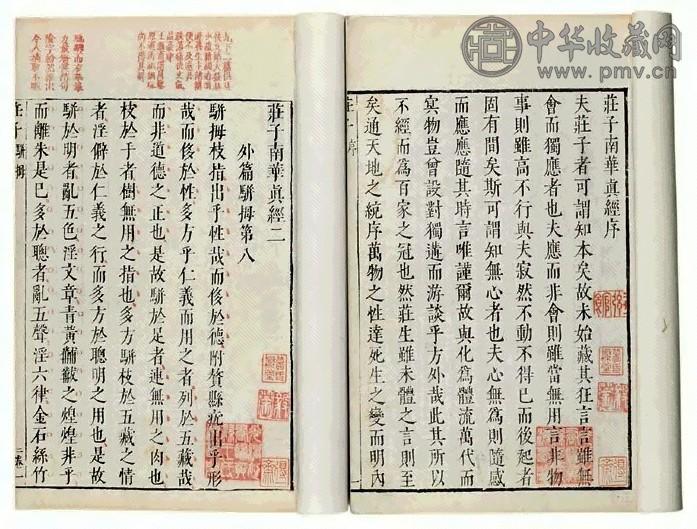 中华收藏网
www.pmv.cn
莊子南華眞經序
夫莊子者可謂知本矣故未始藏其狂言言雖無
會而獨應者也夫應而非會則雖當無用言非物
事則雖高不行與夫寂然不動不得已而後起者
固有間矣斯可謂知無心者也夫心無爲則隨感
而應應隨其時言唯謹爾故與化爲體流萬代而
冥物豈曾設對獨遘而游談乎方外哉此其所以
不經而爲百家之冠也然莊生雖未體之言則至
矣通天地之統序萬物之性達死生之變而明內
莊子序
莊子南華眞經二
外篇駢拇第八
駢拇枝指出乎性哉而侈於德附贅縣疣出乎形
哉而侈於性多方乎仁義而用之者列於五藏哉
而非道德之正也是故駢於足者連無用之肉也
枝於手者樹無用之指也多方駢枝於五藏之情
者淫僻於仁義之行而多方於聰明之用也是故
駢於明者亂五色淫文章青黃黼黻之煌煌非乎
而離朱是已多於聰者亂五聲淫六律金石絲竹
莊子 駢拇